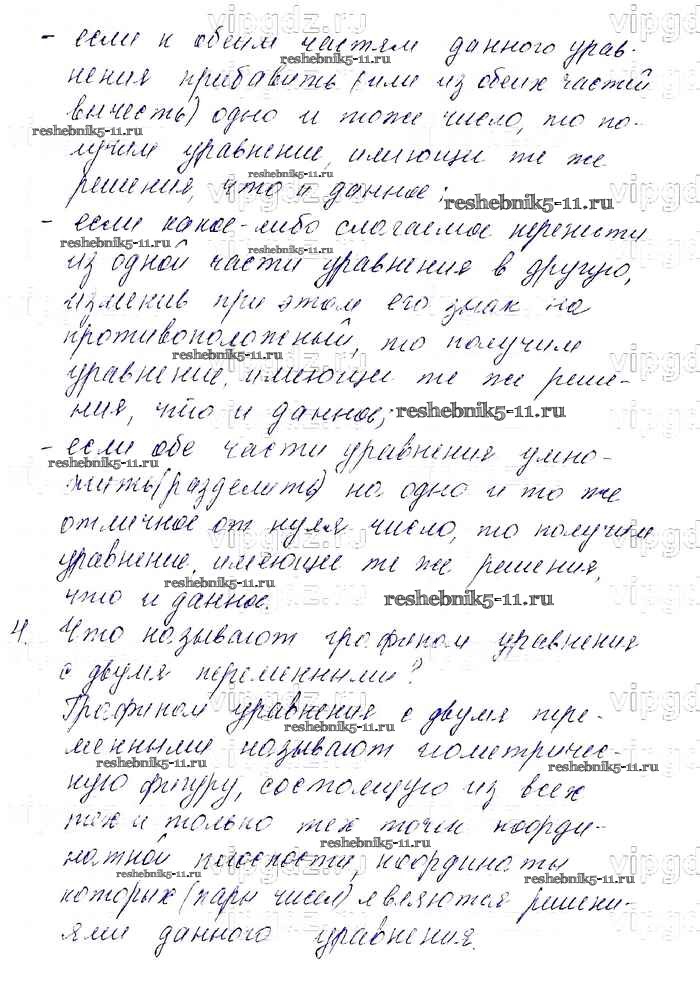 - если к обеим частям данного урав-
нения прибавить (или из обеих частей
вычесть) одно и тоже число, то по-
лучим уравнение, имеющи те же
решения, что и данное;
- если какое-либо слагаемое перенести
из одной части уравнения в другую,
изменив при этом его знак на
противоположеный, то получим
уравнение, имеющи те же реше-
ния, что и данное;
- если обе части уравнения умно-
жить(разделить) на одно и то же
отличное от нуля число, то получим
уравнение, имеющее те же решения,
что и данное.
4. Что называют графиком уравнения
с двумя переменными?
Графиком уравнения с двумя пере-
менными называют геометричес-
кую фигуру, состоящую из всех
тех и только тех точек коорди-
натной плоскости, координаты
которых (пары чисел) являются решени-
ями данного уравнения.
vipgdz.ru
reshebnik5-11.ru